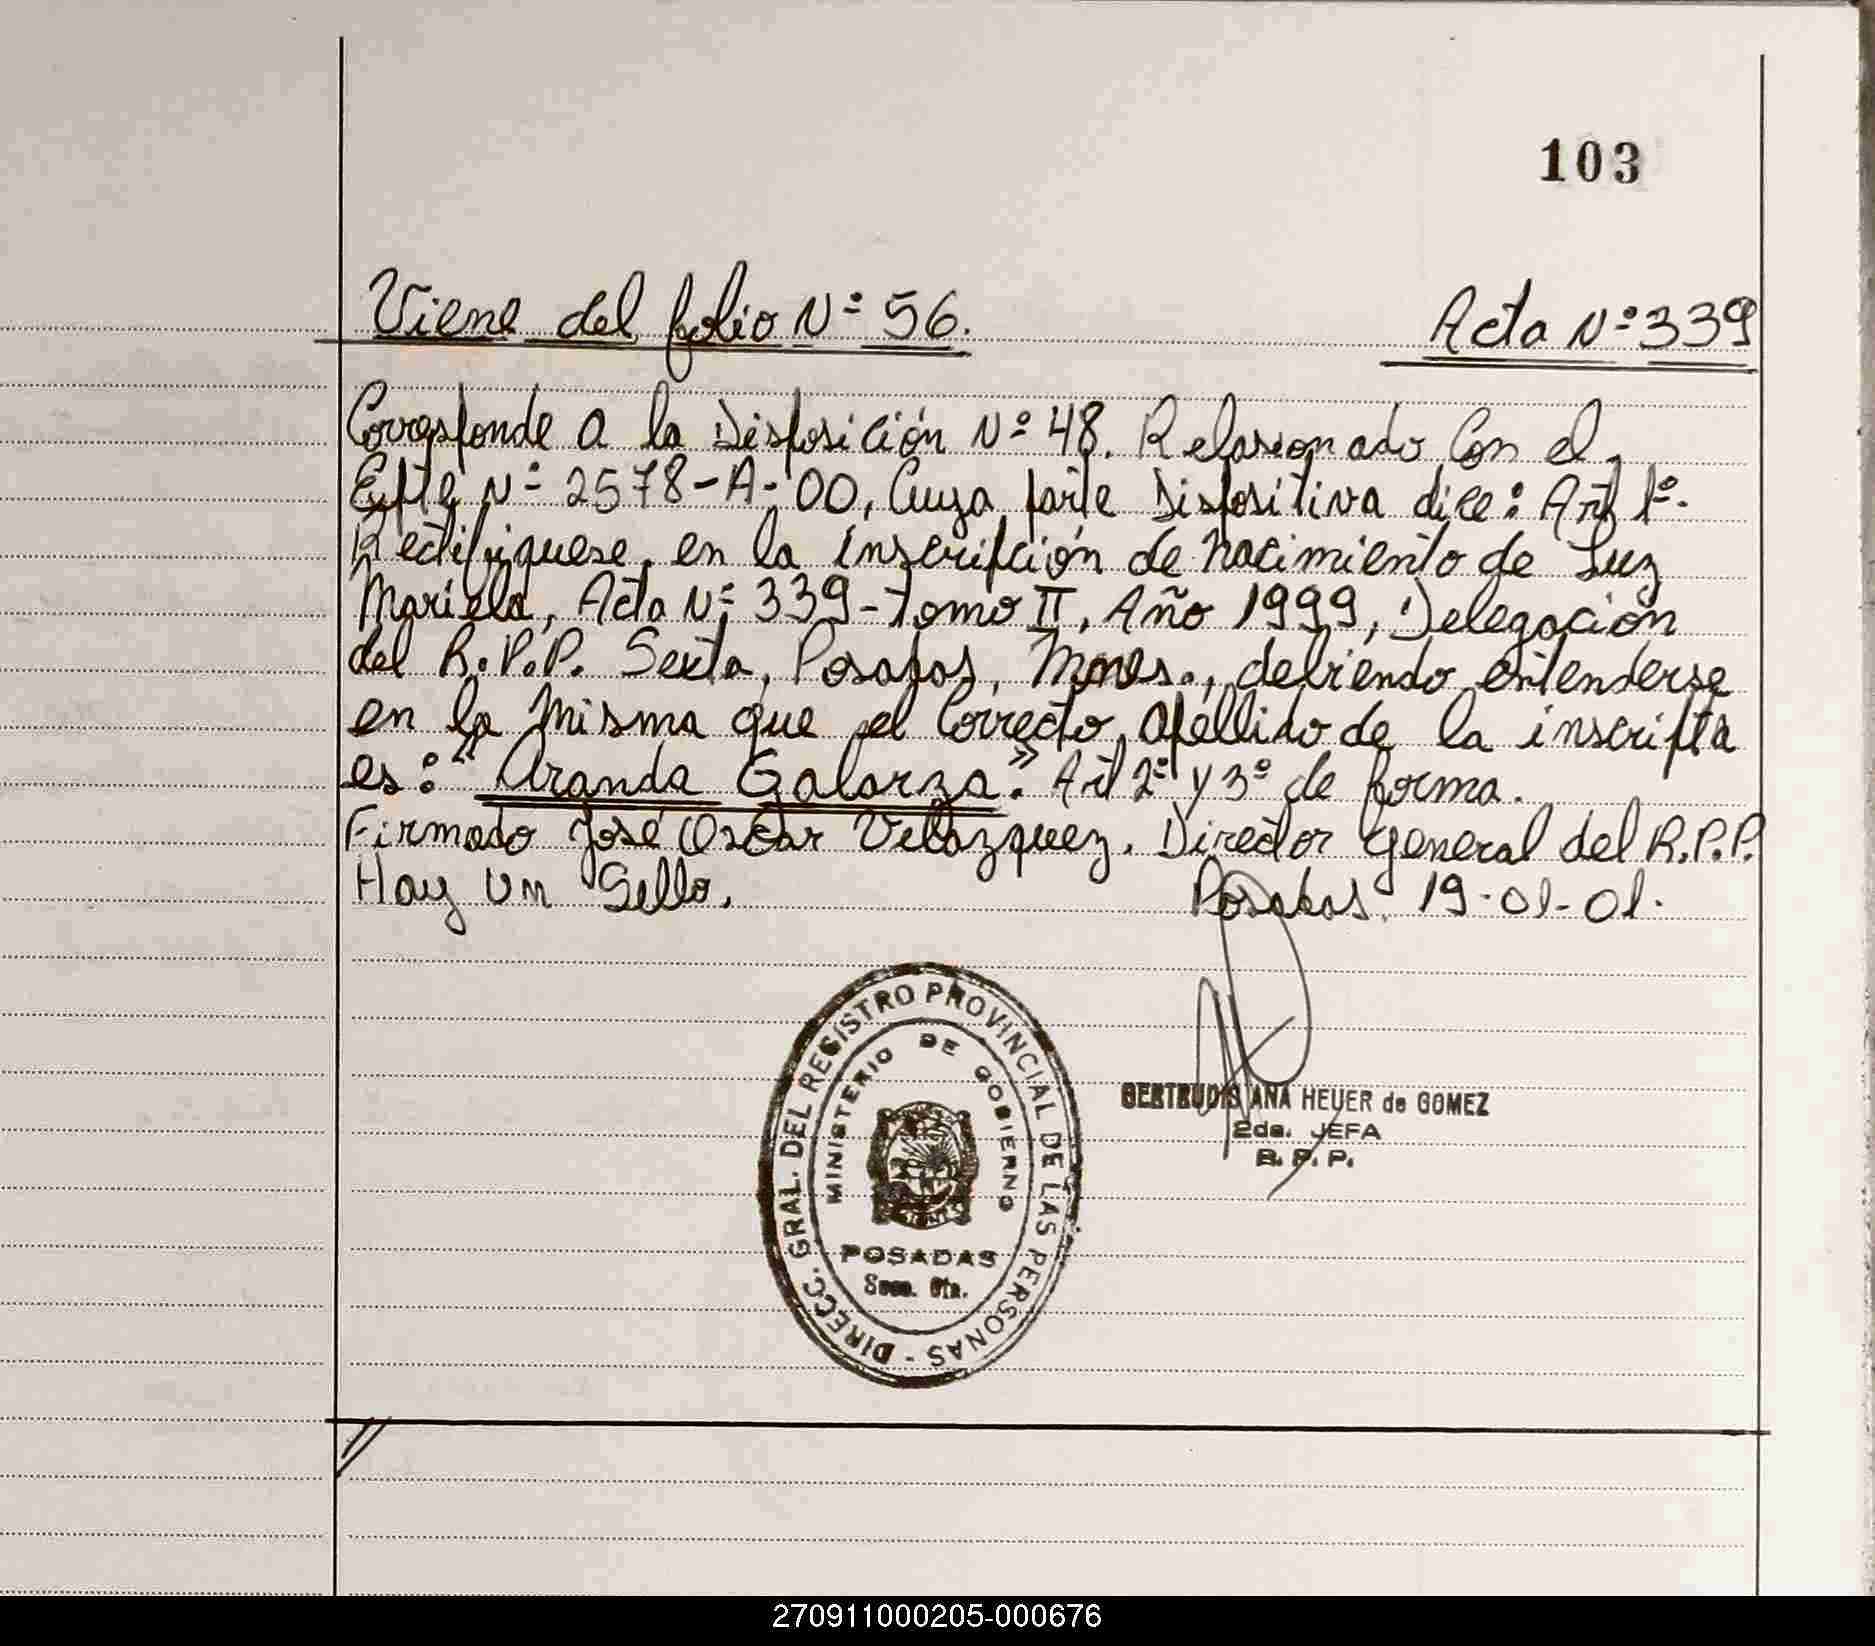 103
Viene del folio Nº 56.
Acta Nº 339
Corresponde a la Disposición Nº 48. Relasionado Con el
Expte Nº 2578-A-00, Cuya parte Dispositiva dice: Art 1º-
Rectifiquese, en la inscripción de nacimiento de Luz
Mariela, Acta Nº 339-Tomo II, Año 1999, Delegación
del R.P.P. Sexta, Posadas, Mnes., debiendo entenderse
en la misma que el Correcto apellido de la inscripta
es: "Aranda Galarza". Art 2º y 3º de forma.
Firmado José Oscar Velazquez. Director General del R.P.P.
Hay un Sello.
Posadas, 19-01-01.
DIRECC. GRAL. DEL REGISTRO PROVINCIAL DE LAS PERSONAS -
MINISTERIO DE GOBIERNO
POSADAS
Secc. 6ta.
GERTRUDIS ANA HEUER de GOMEZ
2da. JEFA
R. P. P.
270911000205-000676